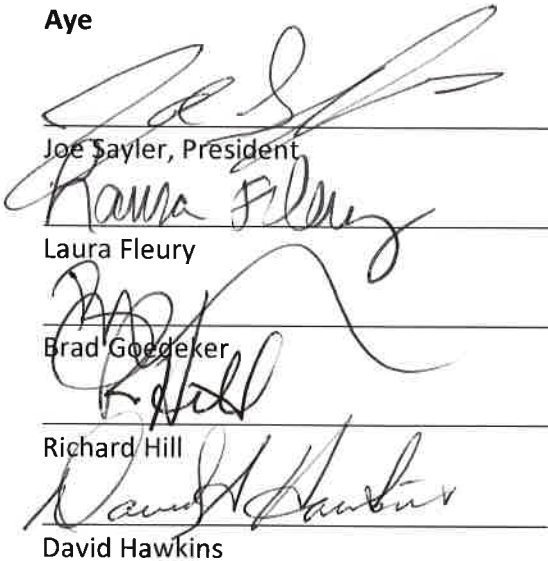 Aye
Joe S
Joe Sayler, President
Laura Fleury
Laura Fleury
Brad Goedeker
R Hill
Richard Hill
David A Hawkins
David Hawkins